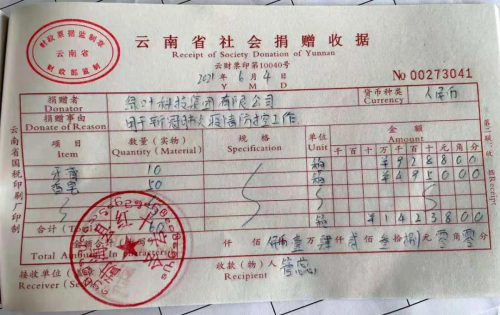 财政票据监制章
云南省
财政部监制
云南省社会捐赠收据
Receipt of Society Donation of Yunnan
云财票印第10040号
2021 6 4
Y M D
No 00273041
捐赠者
Donator
科技集团有限公司
货币种类
Currency
人民币
捐赠事由
Donate of Reason
用于新冠肺炎疫情防控工作
项目
Item
数量(实物)
Quantity (Material)
规格
Specification
单位
Unit
金额
Amount
千百十万千百十元角分
10 箱 ¥928800
50 箱 ¥495000
合计(Total) 60 箱 ¥1423800
Total Amount (in characters)
仟 佰 拾 壹 万 肆 仟 贰 佰 叁 拾 捌 元 零 角 零 分
接收单位
Receiver (Seal)
收款(物)人
Recipient
云南省国税印刷厂印制
第二联 收据 Receipt